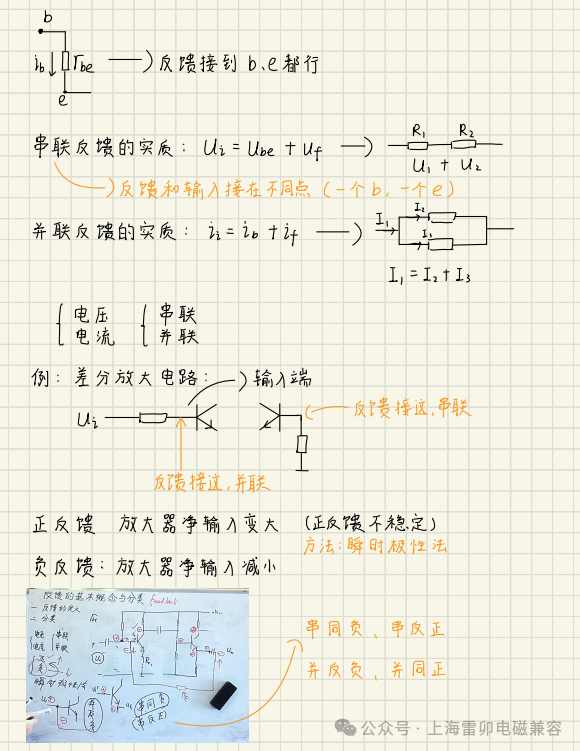 b
ib rbe —→ 反馈接到 b、e都行
e
串联反馈的实质: Ui = Ube + uf —→ R1 R2
U1 + U2
→反馈和输入接在不同点 (一个b, 一个e)
并联反馈的实质: ii = ib + if —→ I1 I2
I3
I1 = I2 + I3
电压 串联
电流 并联
例: 差分放大电路: →输入端
Ui
反馈接这,串联
反馈接这,并联
正反馈 放大器净输入变大 (正反馈不稳定)
方法:瞬时极性法
负反馈: 放大器净输入减小
反馈的基本概念与分类 Feedback
一 反馈的定义
二 分类
电压 串联
电流 并联
串同负
串反正
串同负、串反正
并反负、并同正
公众号 · 上海雷卯电磁兼容